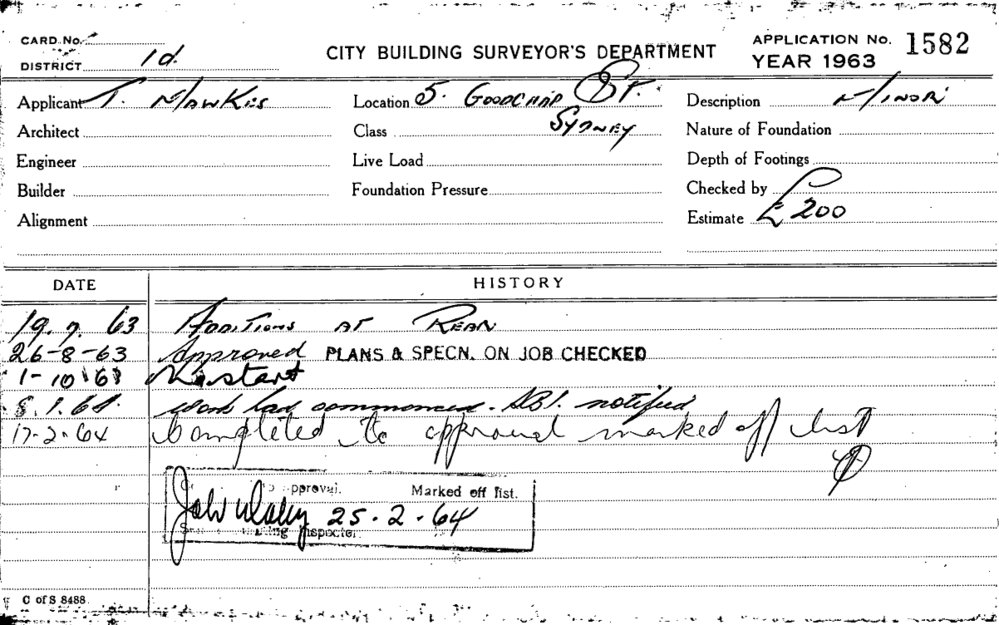 CARD No.
DISTRICT 1d.
CITY BUILDING SURVEYOR'S DEPARTMENT
APPLICATION No. 1582
YEAR 1963
Applicant T. Hawkes
Location 5. Goodchap St.
Sydney
Description Minor
Architect
Class
Nature of Foundation
Engineer
Live Load
Depth of Footings
Builder
Foundation Pressure
Checked by
Alignment
Estimate £200
DATE HISTORY
19.7.63 Additions at Rear
26-8-63 Approved PLANS & SPECN. ON JOB CHECKED
1-10-63 No start
8.1.64. Work had commenced. notified
17-2-64 Completed to approval marked off list
to approval. Marked off list.
25.2.64
Building Inspector.
C of S 8488